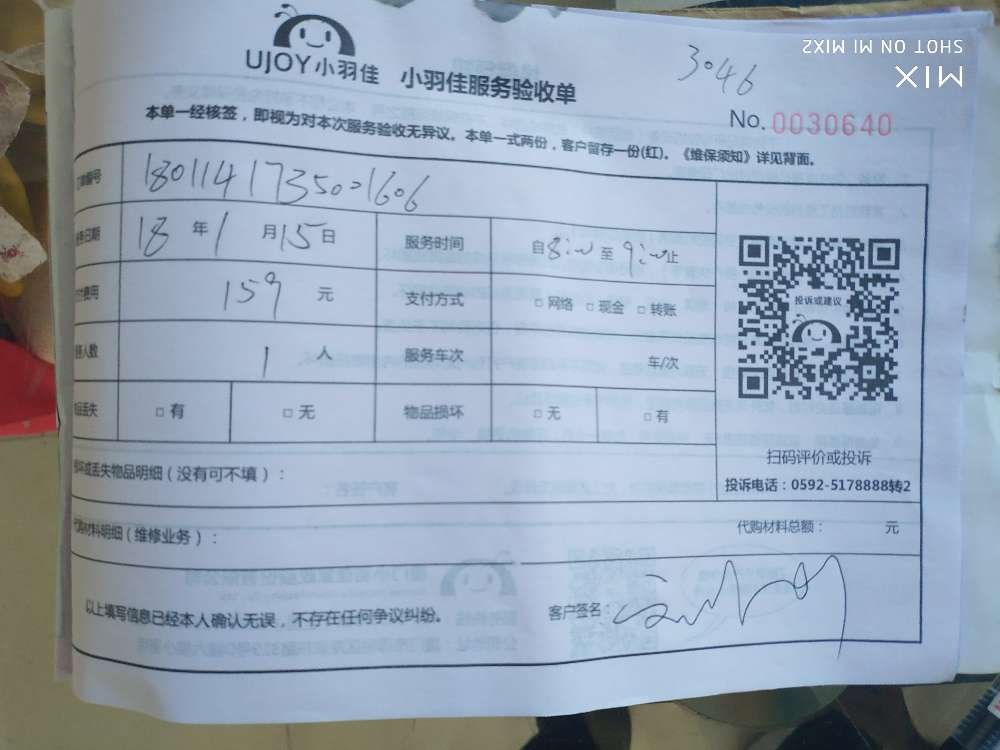 UJOY小羽佳 小羽佳服务验收单
3046
SHOT ON MI MIX2
MIX
No. 0030640
本单一经核签，即视为对本次服务验收无异议。本单一式两份，客户留存一份(红)。《维保须知》详见背面。
订单编号 180114173501606
务日期 18 年 1 月 15 日 服务时间 自 8:00 至 9:00 止
付费用 159 元 支付方式 □ 网络 □ 现金 □ 转账
务人数 1 人 服务车次 车/次
品丢失 □ 有 □ 无 物品损坏 □ 无 □ 有
投诉或建议
扫码评价或投诉
投诉电话：0592-5178888转2
损坏或丢失物品明细（没有可不填）：
代购材料明细（维修业务）： 代购材料总额： 元
以上填写信息已经本人确认无误，不存在任何争议纠纷。 客户签名：